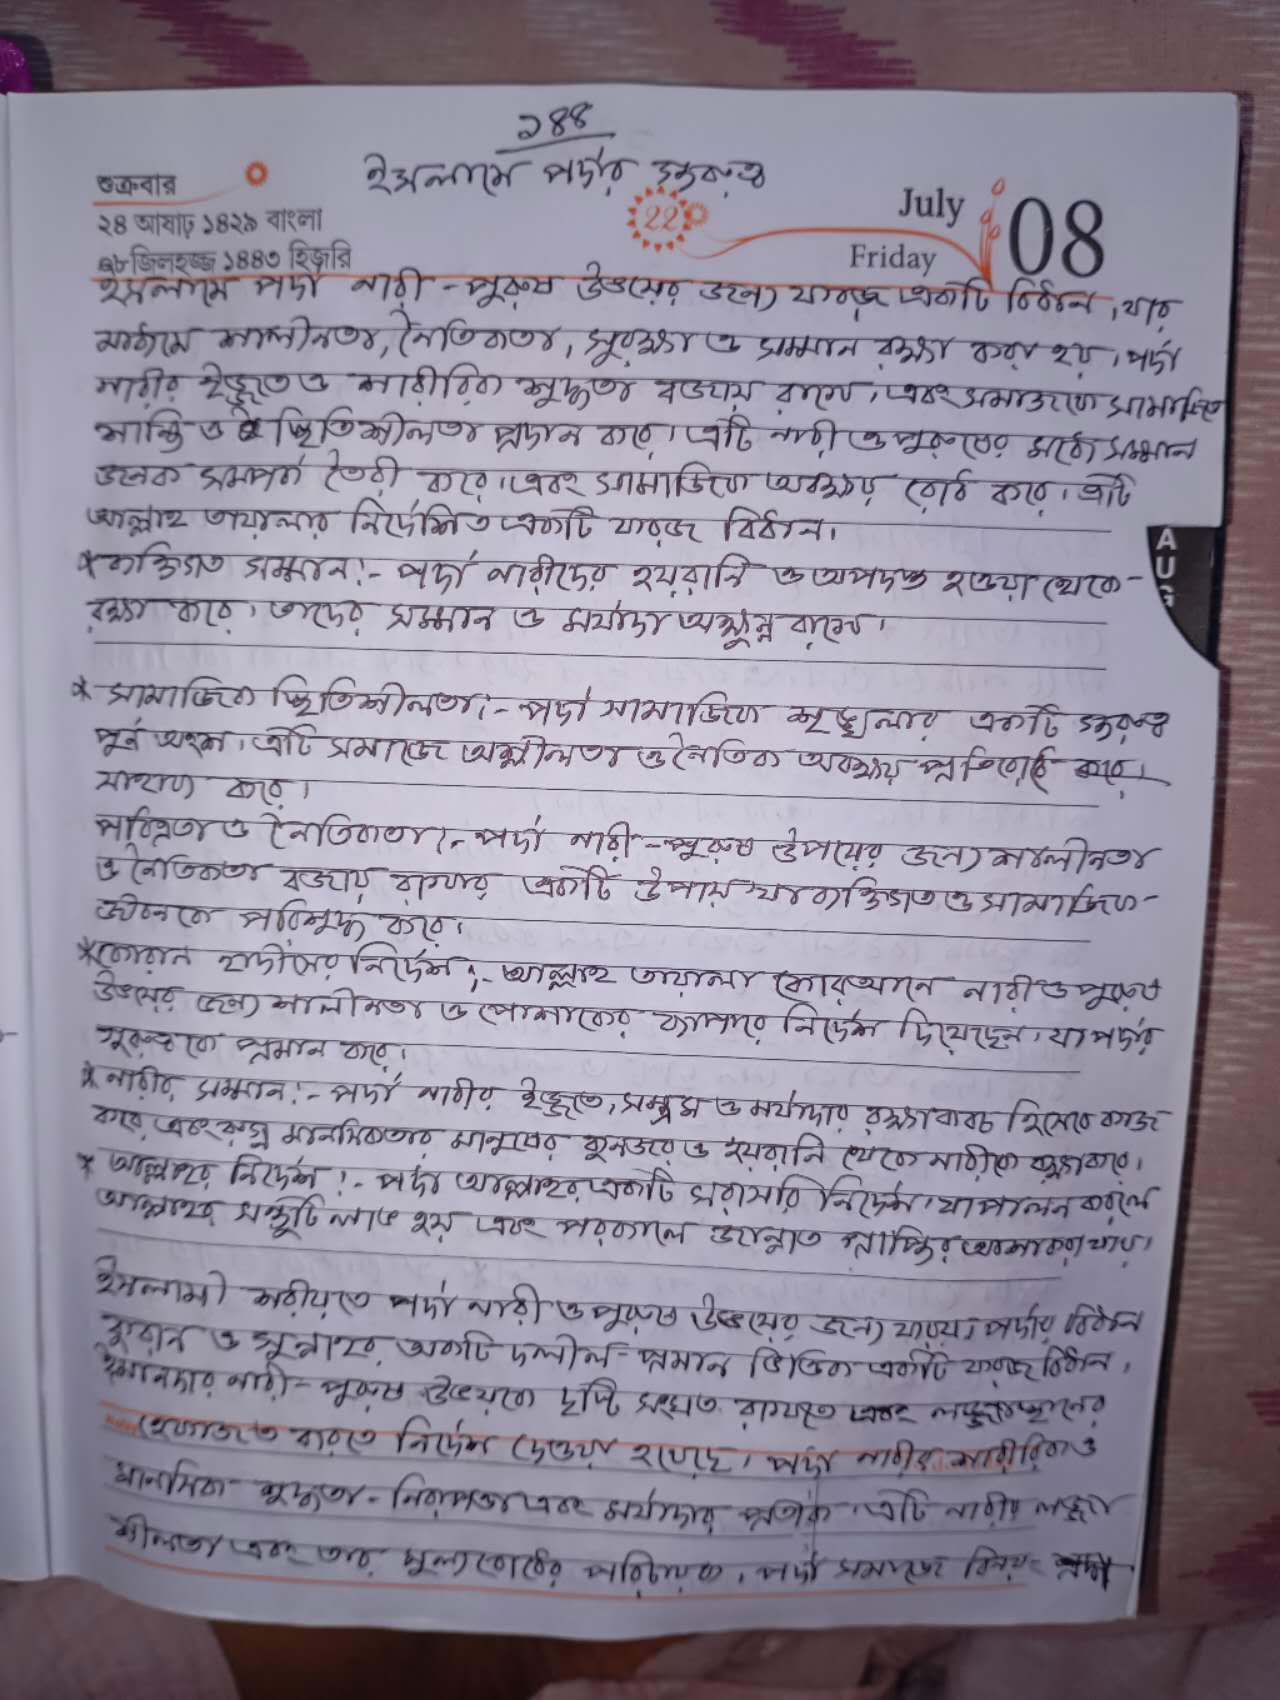 ১৪৪
ইসলামে পর্দার গুরুত্ব
শুক্রবার
২৪ আষাঢ় ১৪২৯ বাংলা
০৮ জিলহজ্জ ১৪৪৩ হিজরি
22
July
Friday
08
ইসলামে পর্দা নারী-পুরুষ উভয়ের জন্য ফরজ একটি বিধান, যার
মাধ্যমে শালীনতা, নৈতিকতা, সুরক্ষা ও সম্মান রক্ষা করা হয়। পর্দা
নারীর ইজ্জত ও শারীরিক শুদ্ধতা বজায় রাখে, এবং সমাজকে সামাজিক
শান্তি ও স্থিতিশীলতা প্রদান করে। এটি নারী ও পুরুষের মধ্যে সম্মান
জনক সম্পর্ক তৈরী করে। এবং সামাজিক অবক্ষয় রোধ করে। এটি
আল্লাহ তায়ালার নির্দেশিত একটি ফরজ বিধান।
*ব্যক্তিগত সম্মান:- পর্দা নারীদের হয়রানি ও অপদস্ত হওয়া থেকে-
রক্ষা করে। তাদের সম্মান ও মর্যাদা অক্ষুন্ন রাখে।
* সামাজিক স্থিতিশীলতা:- পর্দা সামাজিক শৃঙ্খলার একটি গুরুত্ব
পূর্ন অংশ। এটি সমাজে অশ্লীলতা ও নৈতিক অবক্ষয় প্রতিরোধ করে।
সাহায্য করে।
পবিত্রতা ও নৈতিকতা:- পর্দা নারী-পুরুষ উভয়ের জন্য শালীনতা
ও নৈতিকতা বজায় রাখার একটি উপায় যা ব্যক্তিগত ও সামাজিক-
জীবনকে পরিশুদ্ধ করে।
*কোরান হাদীসের নির্দেশ:- আল্লাহ তায়ালা কোরআনে নারী ও পুরুষ
উভয়ের জন্য শালীনতা ও পোশাকের ব্যাপারে নির্দেশ দিয়েছেন। যা পর্দার
গুরুত্বকে প্রমান করে।
* নারীর সম্মান:- পর্দা নারীর ইজ্জত, সম্ভ্রম ও মর্যাদার রক্ষাকবচ হিসেবে কাজ
করে এবং রুগ্ন মানসিকতার মানুষের কুনজর ও হয়রানি থেকে নারীকে রক্ষা করে।
* আল্লাহর নির্দেশ:- পর্দা আল্লাহর একটি সরাসরি নির্দেশ। যা পালন করলে
আল্লাহর সন্তুষ্টি লাভ হয় এবং পরকালে জান্নাত প্রাপ্তির আশা করা যায়।
ইসলামী শরীয়তে পর্দা নারী ও পুরুষ উভয়ের জন্য ফরয। পর্দার বিধান
কুরান ও সুন্নাহর একটি দলীল-প্রমান ভিত্তিক একটি ফরজ বিধান,
ইমানদার নারী-পুরুষ উভয়কে দৃষ্টি সংযত রাখতে এবং লজ্জাস্থানের
হেফাজত করতে নির্দেশ দেওয়া হয়েছে। পর্দা নারীর শারীরিক ও
মানসিক শুদ্ধতা-নিরাপত্তা এবং মর্যাদার প্রতীক। এটি নারীর লজ্জা
শীলতা এবং তার মূল্যবোধের পরিচায়ক। পর্দা সমাজে
AUG